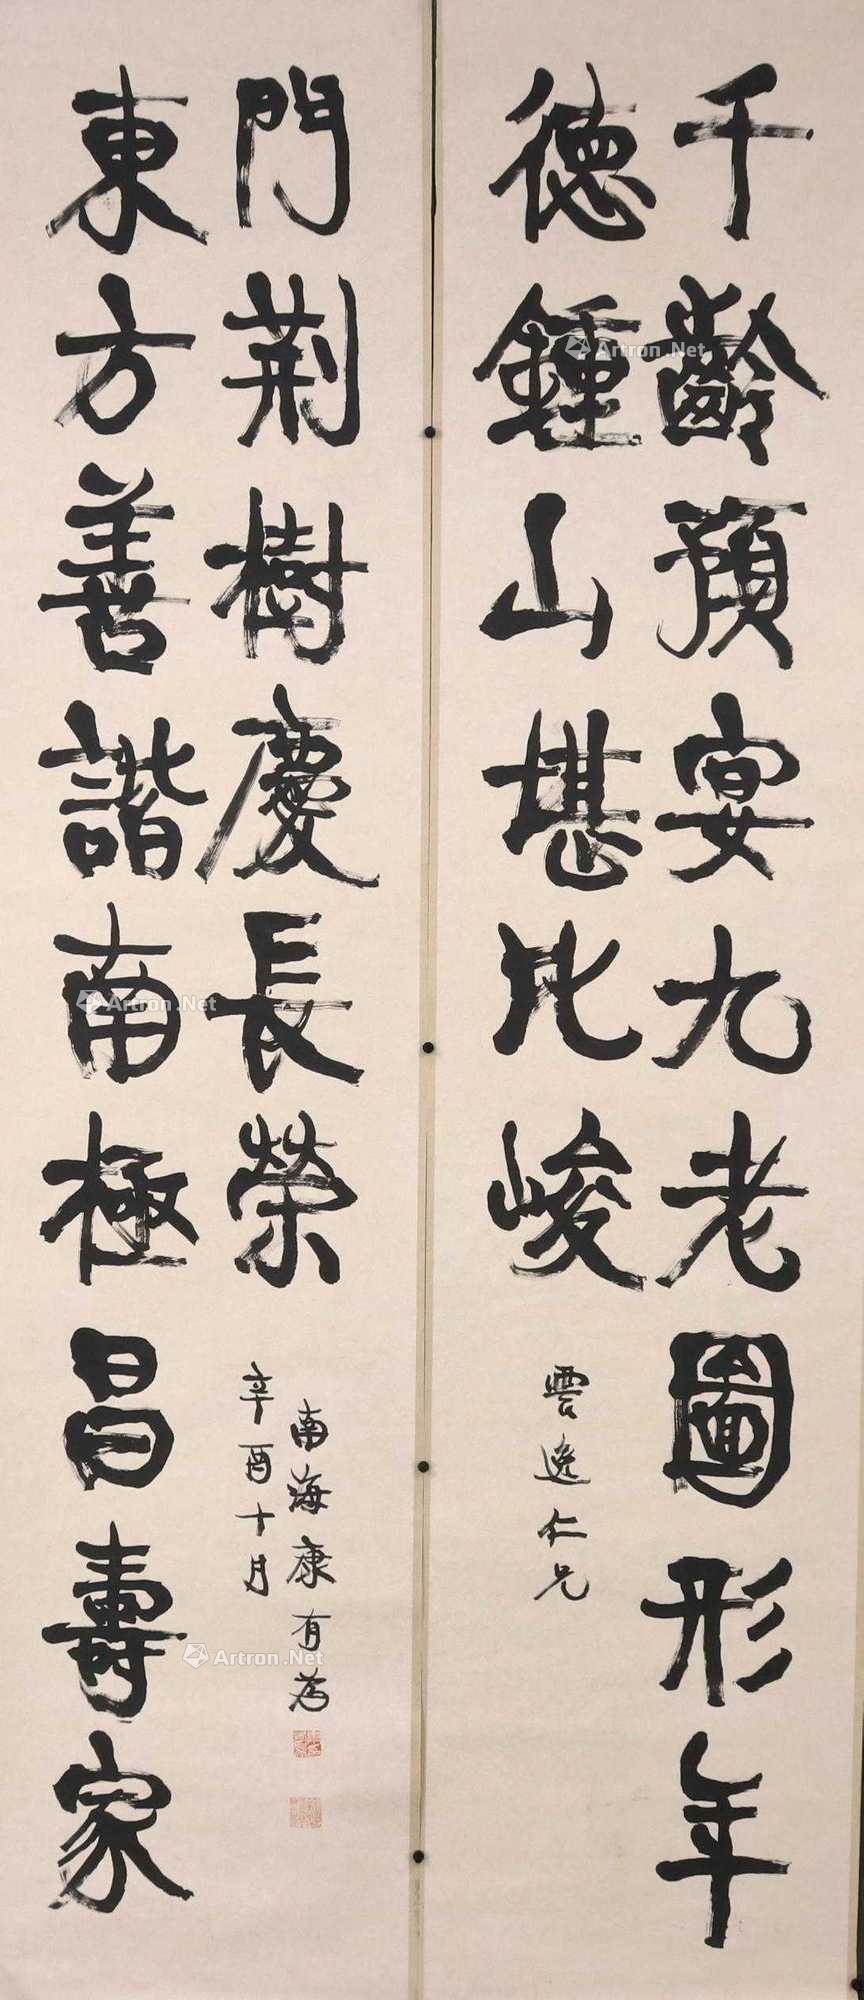 千齡預宴九老圖形年
德鍾山堪比峻
雲逸仁兄
東方善諧南極昌壽家
門荆樹慶長榮
辛酉十月
南海康有為
Artron.Net
Artron.Net
Artron.Net
Artron.Net